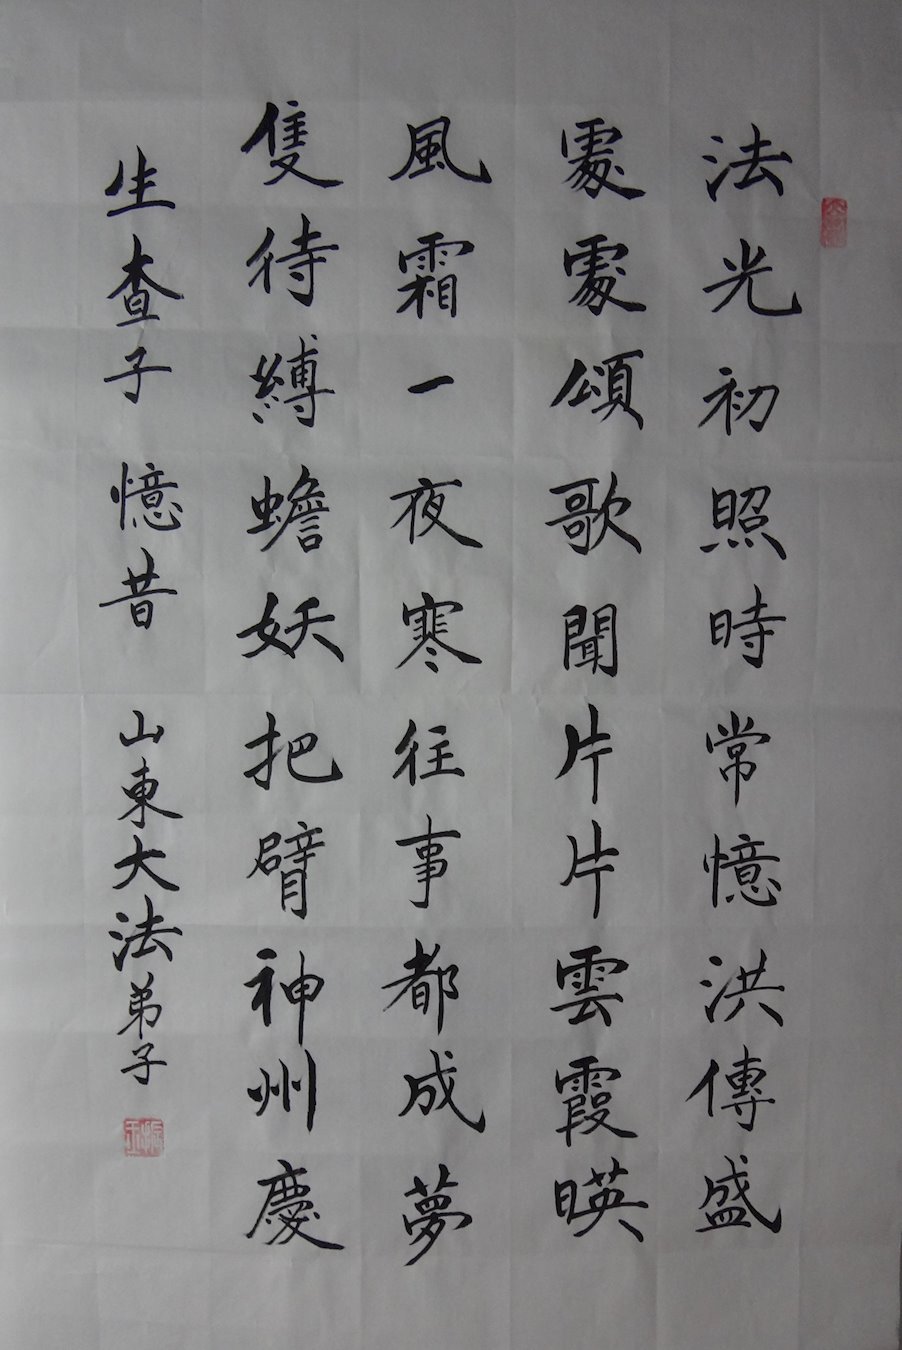 法光初照時常憶洪傳盛
處處頌歌聞片片雲霞暎
風霜一夜寒往事都成夢
隻待縛蟾妖把臂神州慶
生查子 憶昔 山東大法弟子